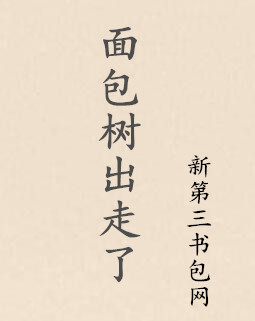 面包树出走了
新第三书包网